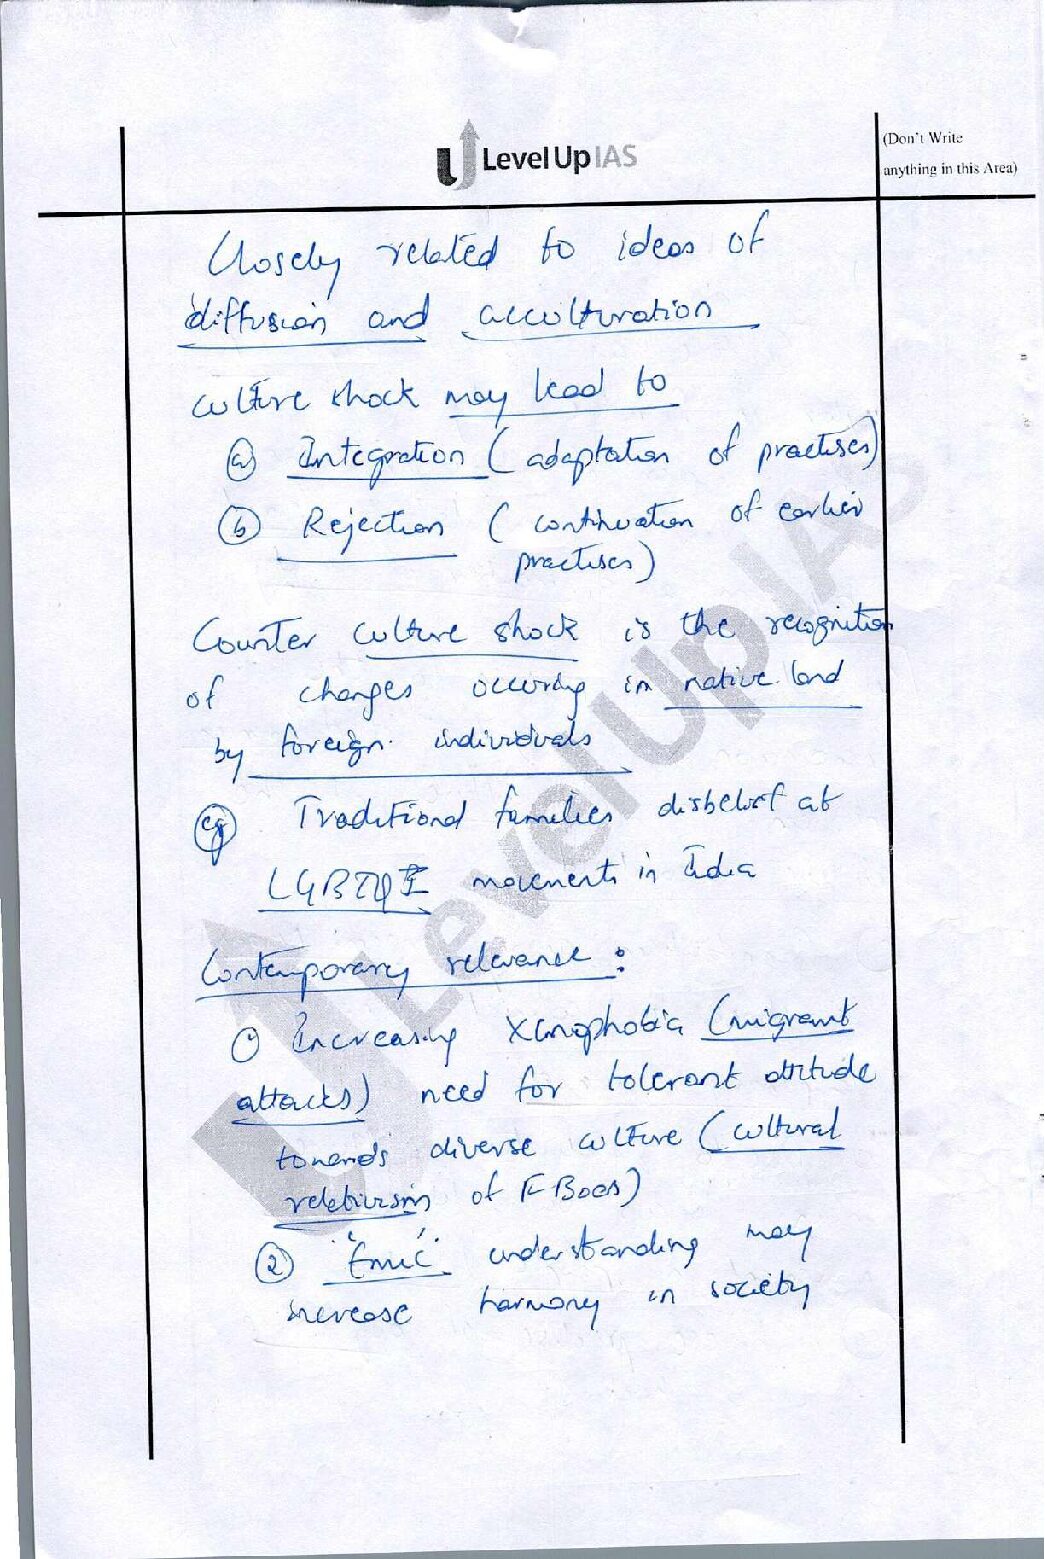 Level Up IAS
(Don't Write
anything in this Area)
Closely related to ideas of
diffusion and acculturation
culture shock may lead to
(a) Integration (adaptation of practises)
(b) Rejection (continuation of earlier
practises)
Counter culture shock is the recognition
of changes occuring in native land
by foreign individuals
eg Traditional families disbelief at
LGBTQI movements in India
Contemporary relevance :
1) Increasing Xenophobia (migrant
attacks) need for tolerant attitude
towards diverse culture (cultural
relativism of F Boas)
(2) 'Emic' understanding may
increase harmony in society
Level Up IAS